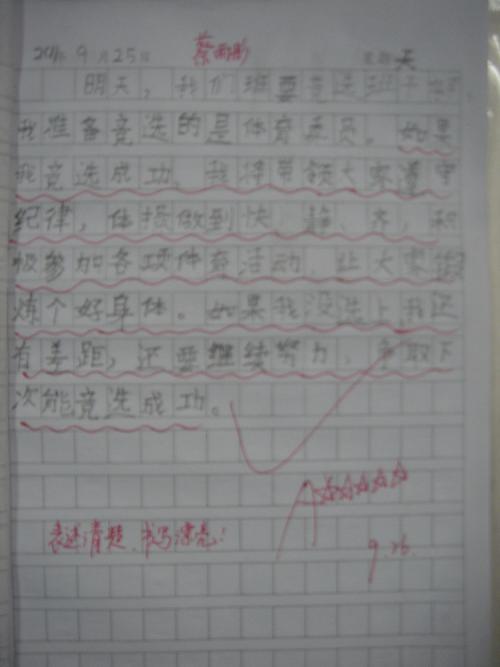 2011年9月25日 蔡雨彤 星期天
明天，我们班要竞选班干部，
我准备竞选的是体育委员。如果
我竞选成功，我将带领大家遵守
纪律，体操做到快、静、齐，积
极参加各项体育活动，让大家锻
炼个好身体。如果我没选上我还
有差距，还要继续努力，争取下
次能竞选成功。
表述清楚，书写漂亮！
9.26.